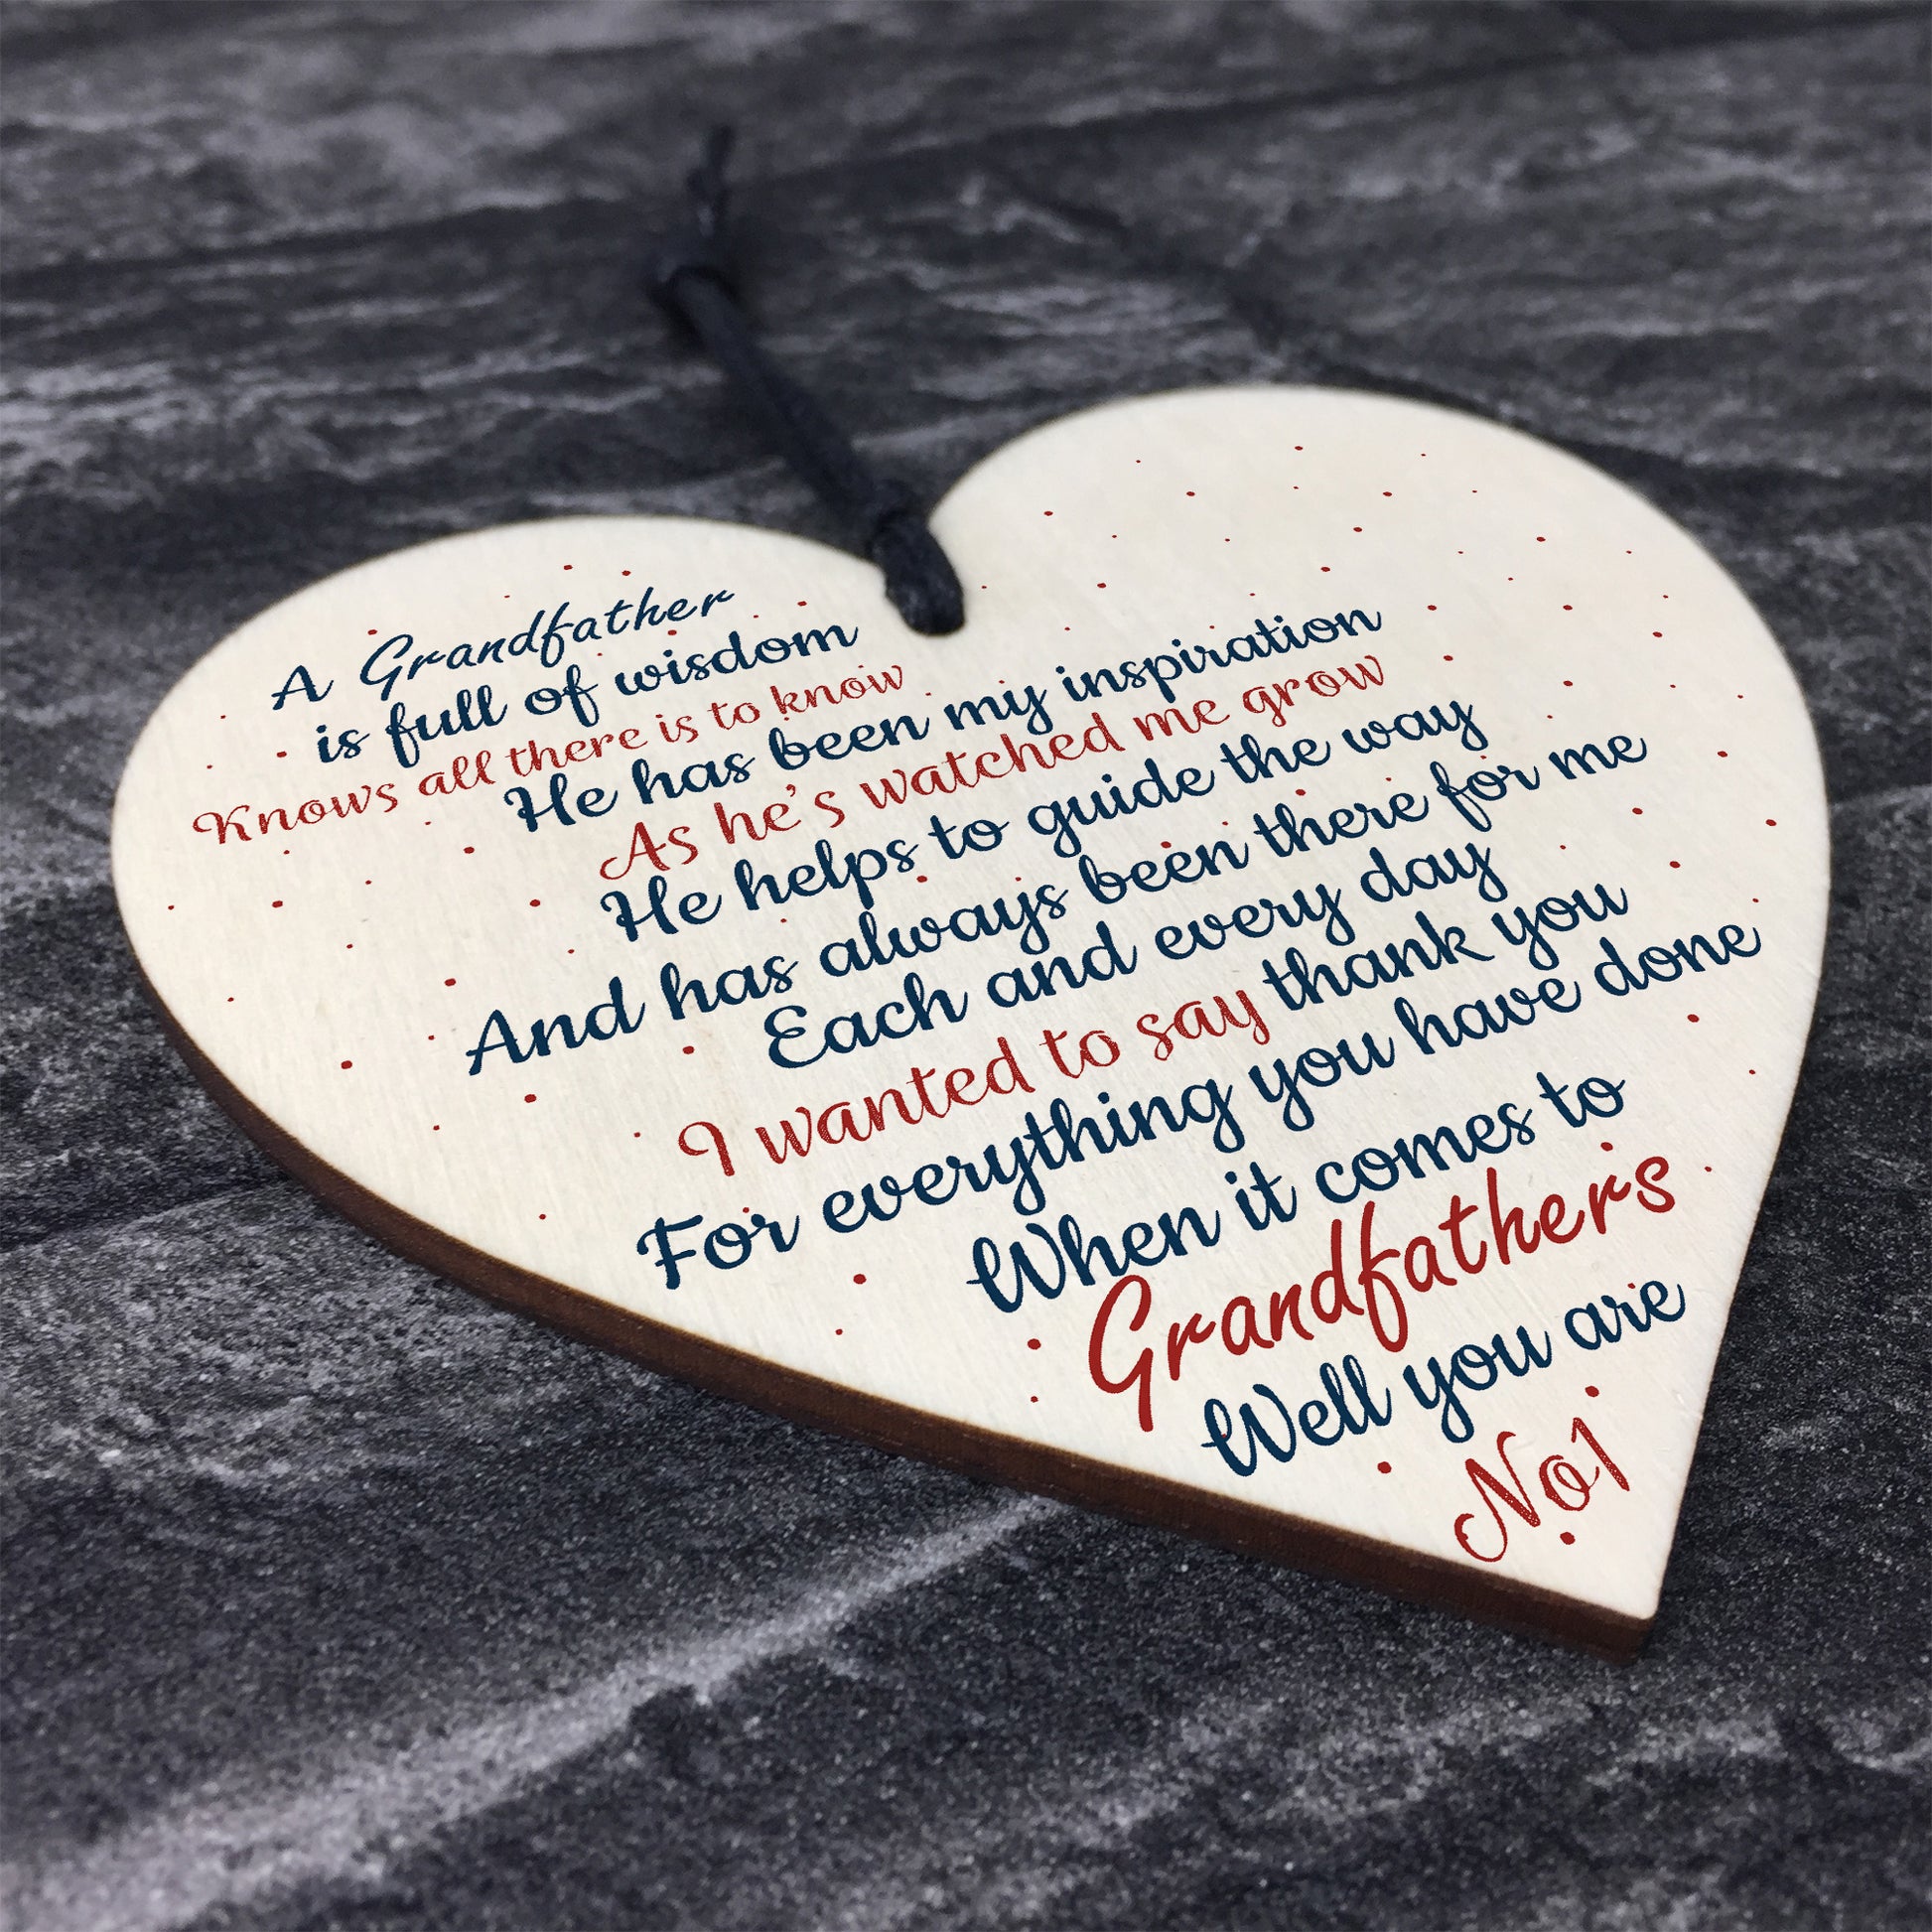 A Grandfather
is full of wisdom
Knows all there is to know
He has been my inspiration
As he's watched me grow
He helps to guide the way
And has always been there for me
Each and every day
I wanted to say thank you
For everything you have done
When it comes to
Grandfathers
Well you are
No1